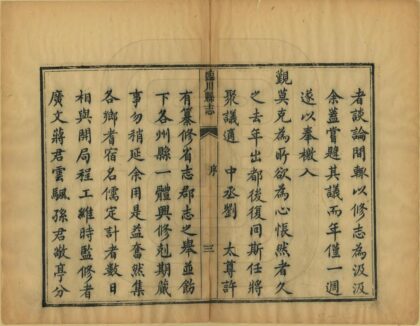 者談論間輒以修志為汲汲
余蓋嘗題其議而年僅一週
遂以奉檄入
覲莫克為所欲為心悵然者久
之去年出都後復同斯任將
聚議適 中丞劉 太尊許
臨川縣志
序
三
有纂修省志郡志之舉並飭
下各州縣一體興修剋期蕆
事勿稍延余用是益奮然集
各鄉耆宿名儒定計者數日
相與開局程工維時監修者
廣文蔣君雲颿孫君敬亭分